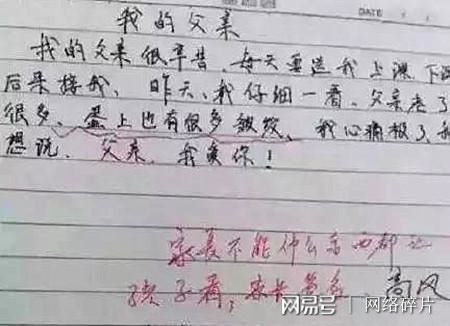 我的父亲
DATE
我的父亲很辛昔,每天要送我上课、下课
后来接我、昨天、我仔细一看、父亲老了
很多、蛋上也有很多皱纹、我心痛极了、我
想说、父亲、我爱你!
家长不能什么东西都让
孩子看,家长签名 高风
网易号 网络碎片